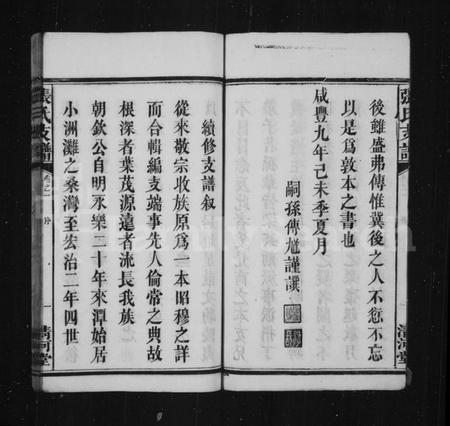 張氏支譜
後雖盛弗傳惟冀後之人不愆不忘
以是為敦本之書也
咸豐九年己未季夏月
嗣孫傳尷謹譔
清河堂
張氏支譜
卷之一
序
一
清河堂
續修支譜叙
從來敬宗收族原為一本昭穆之詳
而合輯編支端事先人倫常之典故
根深者葉茂源遠者流長我族
朝欽公自明永樂二十年來潭始居
小洲灘之桑灣至宏治二年四世